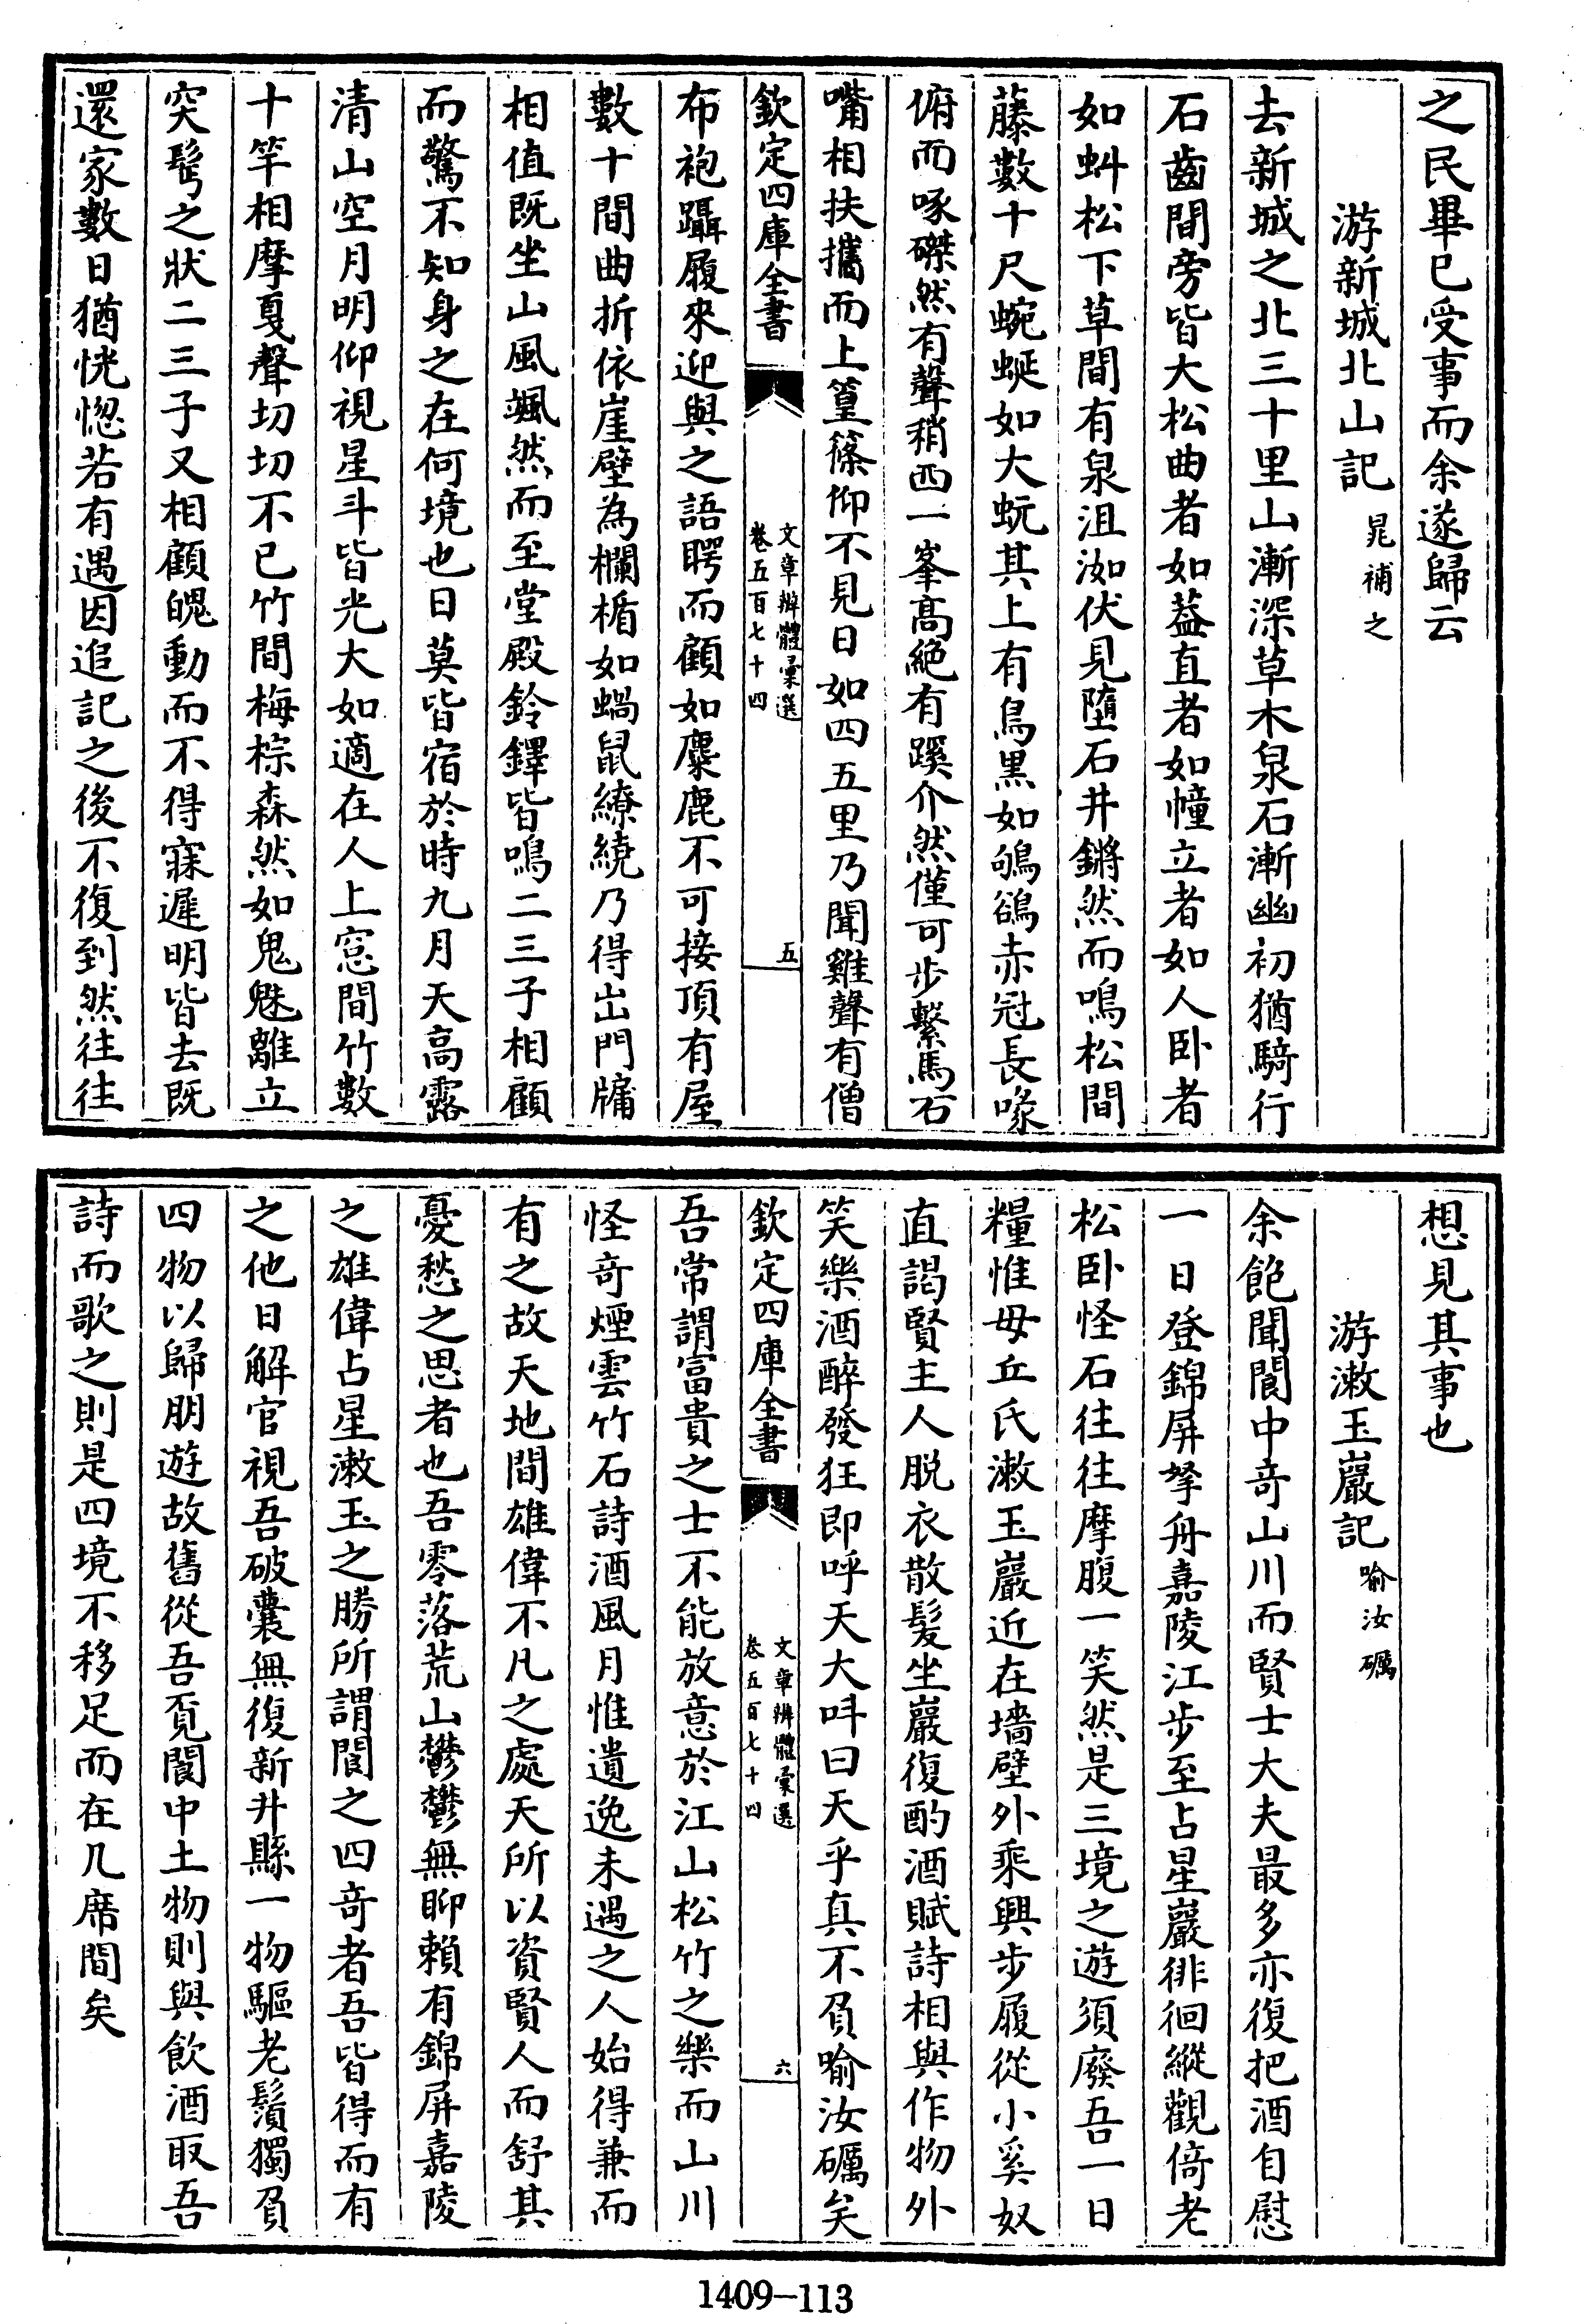 之民畢已受事而余遂歸云
游新城北山記 晁補之
去新城之北三十里山漸深草木泉石漸幽初猶騎行
石齒間旁皆大松曲者如葢直者如幢立者如人卧者
如虯松下草間有泉沮洳伏見墮石井鏘然而鳴松間
藤數十尺蜿蜒如大蚖其上有鳥黑如鴝鵒赤冠長喙
俯而啄磔然有聲稍西一峯高絶有蹊介然僅可步繫馬石
嘴相扶攜而上篁篠仰不見日如四五里乃聞雞聲有僧
欽定四庫全書
文章辨體彙選
卷五百七十四
五
布袍躡履來迎與之語愕而顧如麋鹿不可接頂有屋
數十間曲折依崖壁為欄楯如蝸鼠繚繞乃得出門牖
相值既坐山風颯然而至堂殿鈴鐸皆鳴二三子相顧
而驚不知身之在何境也日莫皆宿於時九月天高露
清山空月明仰視星斗皆光大如適在人上窓間竹數
十竿相摩戛聲切切不已竹間梅棕森然如鬼魅離立
突鬢之狀二三子又相顧魄動而不得寐遲明皆去既
還家數日猶恍惚若有遇因追記之後不復到然往往
想見其事也
游漱玉巖記 喻汝礪
余飽聞閬中奇山川而賢士大夫最多亦復把酒自慰
一日登錦屏拏舟嘉陵江步至占星巖徘徊縱觀倚老
松卧怪石往往摩腹一笑然是三境之遊須廢吾一日
糧惟毋丘氏漱玉巖近在墻壁外乘興步履從小奚奴
直謁賢主人脱衣散髮坐巖復酌酒賦詩相與作物外
笑樂酒醉發狂即呼天大呌曰天乎真不負喻汝礪矣
欽定四庫全書
文章辨體彙選
卷五百七十四
六
吾常謂富貴之士不能放意於江山松竹之樂而山川
怪奇煙雲竹石詩酒風月惟遺逸未遇之人始得兼而
有之故天地間雄偉不凡之處天所以資賢人而舒其
憂愁之思者也吾零落荒山鬱鬱無聊賴有錦屏嘉陵
之雄偉占星漱玉之勝所謂閬之四奇者吾皆得而有
之他日解官視吾破囊無復新井縣一物驅老鬚獨負
四物以歸朋遊故舊從吾覔閬中土物則與飲酒取吾
詩而歌之則是四境不移足而在几席間矣
1409-113